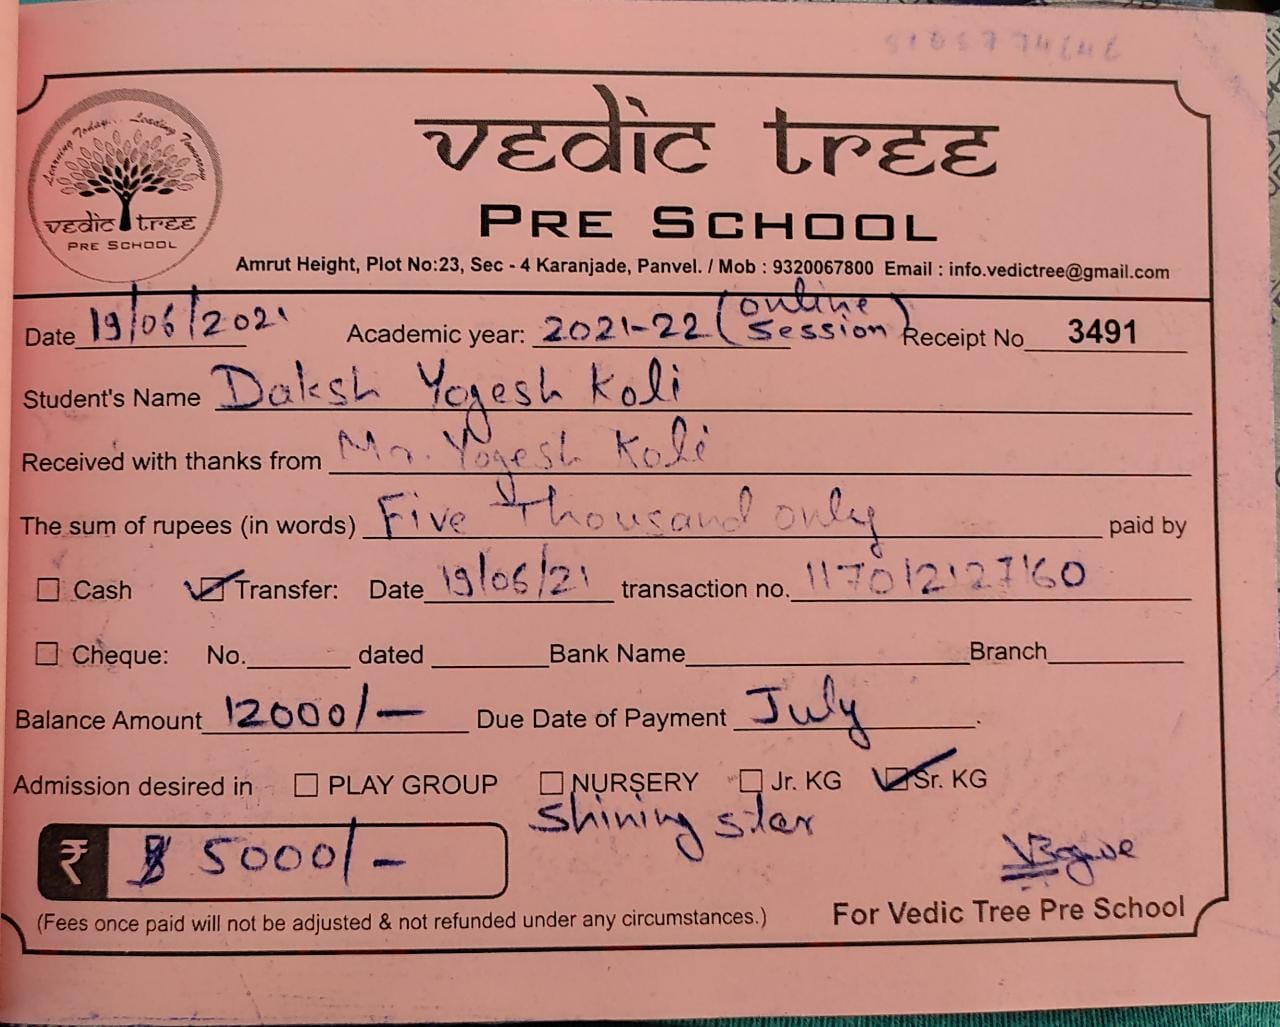 Learning Today... Leading Tomorrow
vedic tree
PRE SCHOOL
vedic tree
PRE SCHOOL
Amrut Height, Plot No:23, Sec - 4 Karanjade, Panvel. / Mob : 9320067800 Email : info.vedictree@gmail.com
Date 19/06/2021 Academic year: 2021-22 (online session) Receipt No 3491
Student's Name Daksh Yogesh Koli
Received with thanks from Mr. Yogesh Koli
The sum of rupees (in words) Five Thousand only paid by
Cash Transfer: Date 19/06/21 transaction no. 117012127160
Cheque: No. dated Bank Name Branch
Balance Amount 12000/- Due Date of Payment July
Admission desired in PLAY GROUP NURSERY Jr. KG Sr. KG
Shining star
₹ 5000/-
(Fees once paid will not be adjusted & not refunded under any circumstances.) For Vedic Tree Pre School